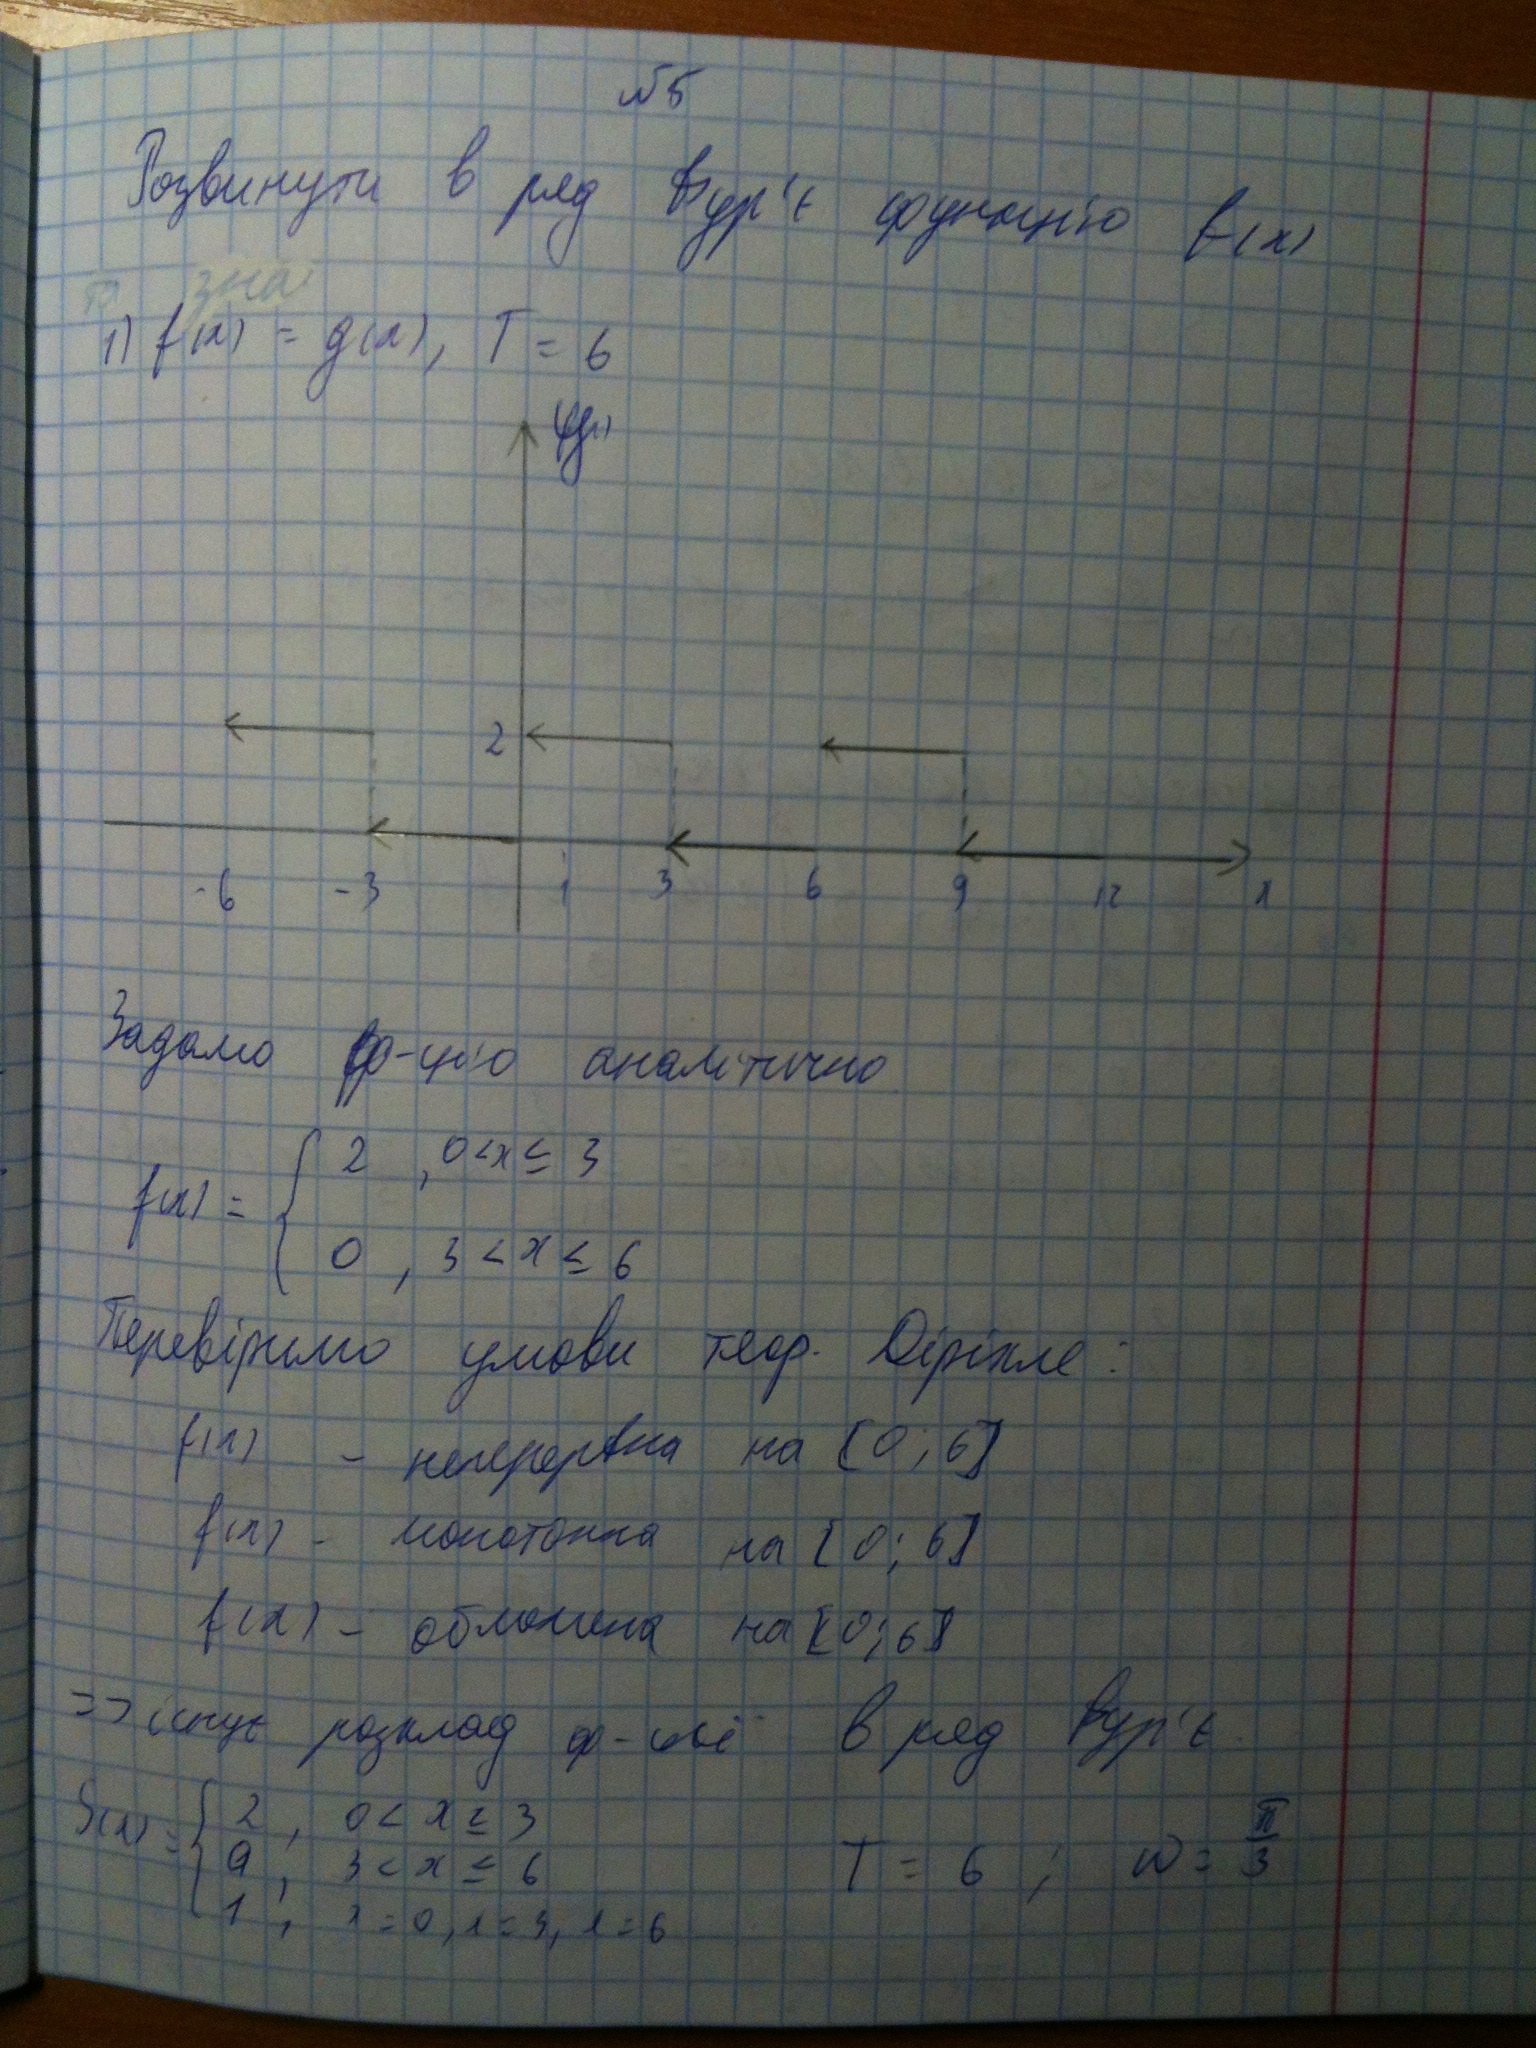 №5
Розвинути в ряд Фур'є функцію f(x)
зна
1) f(x) = g(x), T = 6
2
-6 -3 1 3 6 9 12 x
Задамо ф-цію аналітично
f(x) = { 2 , 0 < x ≤ 3
0 , 3 < x ≤ 6
Перевіримо умови теор. Діріхле:
f(x) - неперервна на [0; 6]
f(x) - монотонна на [0; 6]
f(x) - обмежена на [0; 6]
=> існує розклад ф-ції в ряд Фур'є.
S(x) = { 2 , 0 < x ≤ 3
0 , 3 < x ≤ 6 T = 6 ; w = π/3
1 , x = 0, x = 3, x = 6